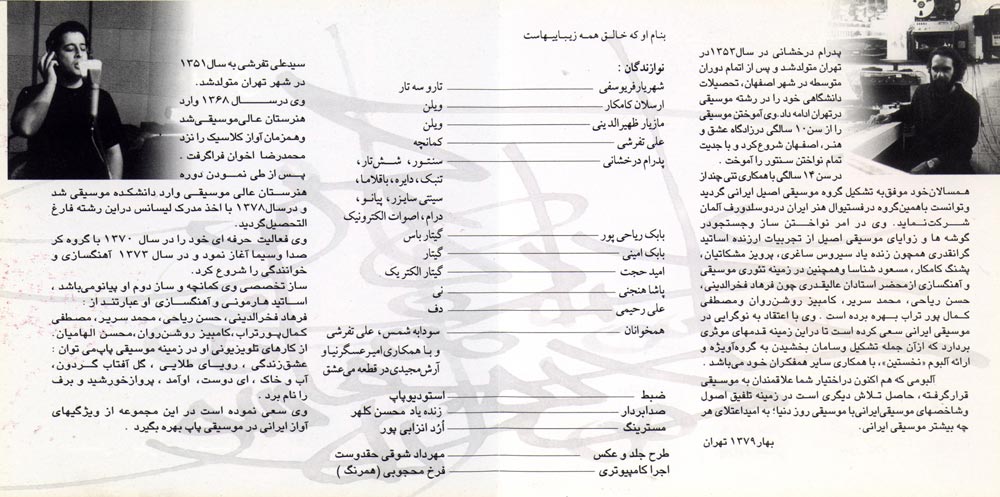 پدرام درخشانی در سال ۱۳۵۲در
تهران متولدشد و پس از اتمام دوران
متوسطه در شهر اصفهان، تحصیلات
دانشگاهی خود را در رشته موسیقی
درتهران ادامه داد.وی آموختن موسیقی
را از سن۱۰ سالگی درزادگاه عشق و
هنر، اصفهان شروع کرد و با جدیت
تمام نواختن سنتور را آموخت .
در سن ۱۴ سالگی با همکاری تنی چنداز
همسالان‌خود موفق‌به تشکیل گروه موسیقی اصیل ایرانی گردید
وتوانست باهمین‌گروه درفستیوال هنر ایران دردوسلدورف آلمان
شرکت‌نماید. وی در امر نواختن ساز وجستجودر
گوشه ها و زوایای موسیقی اصیل از تجربیات ارزنده اساتید
گرانقدری همچون زنده یاد سیروس ساغری، پرویز مشکاتیان،
پشنگ کامکار، مسعود شناسا وهمچنین در زمینه تئوری موسیقی
و آهنگسازی ازمحضر استادان عالیقدری چون فرهاد فخرالدینی،
حسن ریاحی، محمد سریر، کامبیز روشن‌روان ومصطفی
کمال پور تراب بهره برده است . وی با اعتقاد به نوگرایی در
موسیقی ایرانی سعی کرده است تا دراین زمینه قدمهای موثری
بردارد که ازآن جمله تشکیل وسامان بخشیدن به گروه‌آویژه و
ارائه آلبوم «نخستین»، با همکاری سایر همفکران خود می‌باشد .
آلبومی که هم اکنون دراختیار شما علاقمندان به موسیقی
قرارگرفته، حاصل تلاش دیگری است در زمینه تلفیق اصول
وشاخصهای موسیقی‌ایرانی‌با موسیقی روز دنیا؛ به امیداعتلای هر
چه بیشتر موسیقی ایرانی.
بهار ۱۳۷۹ تهران
بنام او که خالق همه زیباییهاست
نوازندگان :
شهریارفریوسفی تارو سه تار
ارسلان کامکار ویلن
مازیار ظهیرالدینی ویلن
علی تفرشی کمانچه
پدرام درخشانی سنتور، شش‌تار،
تنبک، دایره، باقلاما،
سینتی سایزر، پیانو،
درام، اصوات الکترونیک
بابک ریاحی پور گیتار باس
بابک امینی گیتار
امید حجت گیتار الکتریک
پاشا هنجنی نی
علی رحیمی دف
همخوانان سودابه شمس، علی تفرشی
و با همکاری امیر عسگرنیا و
آرش‌مجیدی در قطعه می‌عشق
ضبط استودیوپاپ
صدابردار زنده یاد محسن کلهر
مسترینگ آژد انزابی پور
طرح جلد و عکس مهرداد شوقی حقدوست
اجرا کامپیوتری فرخ محجوبی (همرنگ )
سیدعلی تفرشی به سال ۱۳۵۱
در شهر تهران متولدشد.
وی درسال ۱۳۶۸ وارد
هنرستان عالی‌موسیقی‌شد
وهمزمان آواز کلاسیک را نزد
محمدرضا اخوان فراگرفت .
پس از طی نمودن دوره
هنرستان عالی موسیقی وارد دانشکده موسیقی شد
و درسال۱۳۷۸ با اخذ مدرک لیسانس دراین رشته فارغ
التحصیل‌گردید.
وی فعالیت حرفه ای خود را در سال ۱۳۷۰ با گروه کر
صدا وسیما آغاز نمود و در سال ۱۳۷۳ آهنگسازی و
خوانندگی را شروع کرد.
ساز تخصصی وی کمانچه و ساز دوم او پیانومی‌باشد ،
اساتید هارمونی و آهنگسازی او عبارتند از :
فرهاد فخرالدینی، حسن ریاحی، محمد سریر، مصطفی
کمال‌پورتراب،کامبیز روشن‌روان،محسن الهامیان.
از کارهای تلویزیونی او در زمینه موسیقی پاپ‌می توان :
عشق‌زندگی ، رویای طلایی ، گل آفتاب گردون،
آب و خاک ، ای دوست، اوآمد ، پروازخورشید و برف
را نام برد .
وی سعی نموده است در این مجموعه از ویژگیهای
آواز ایرانی در موسیقی پاپ بهره بگیرد .